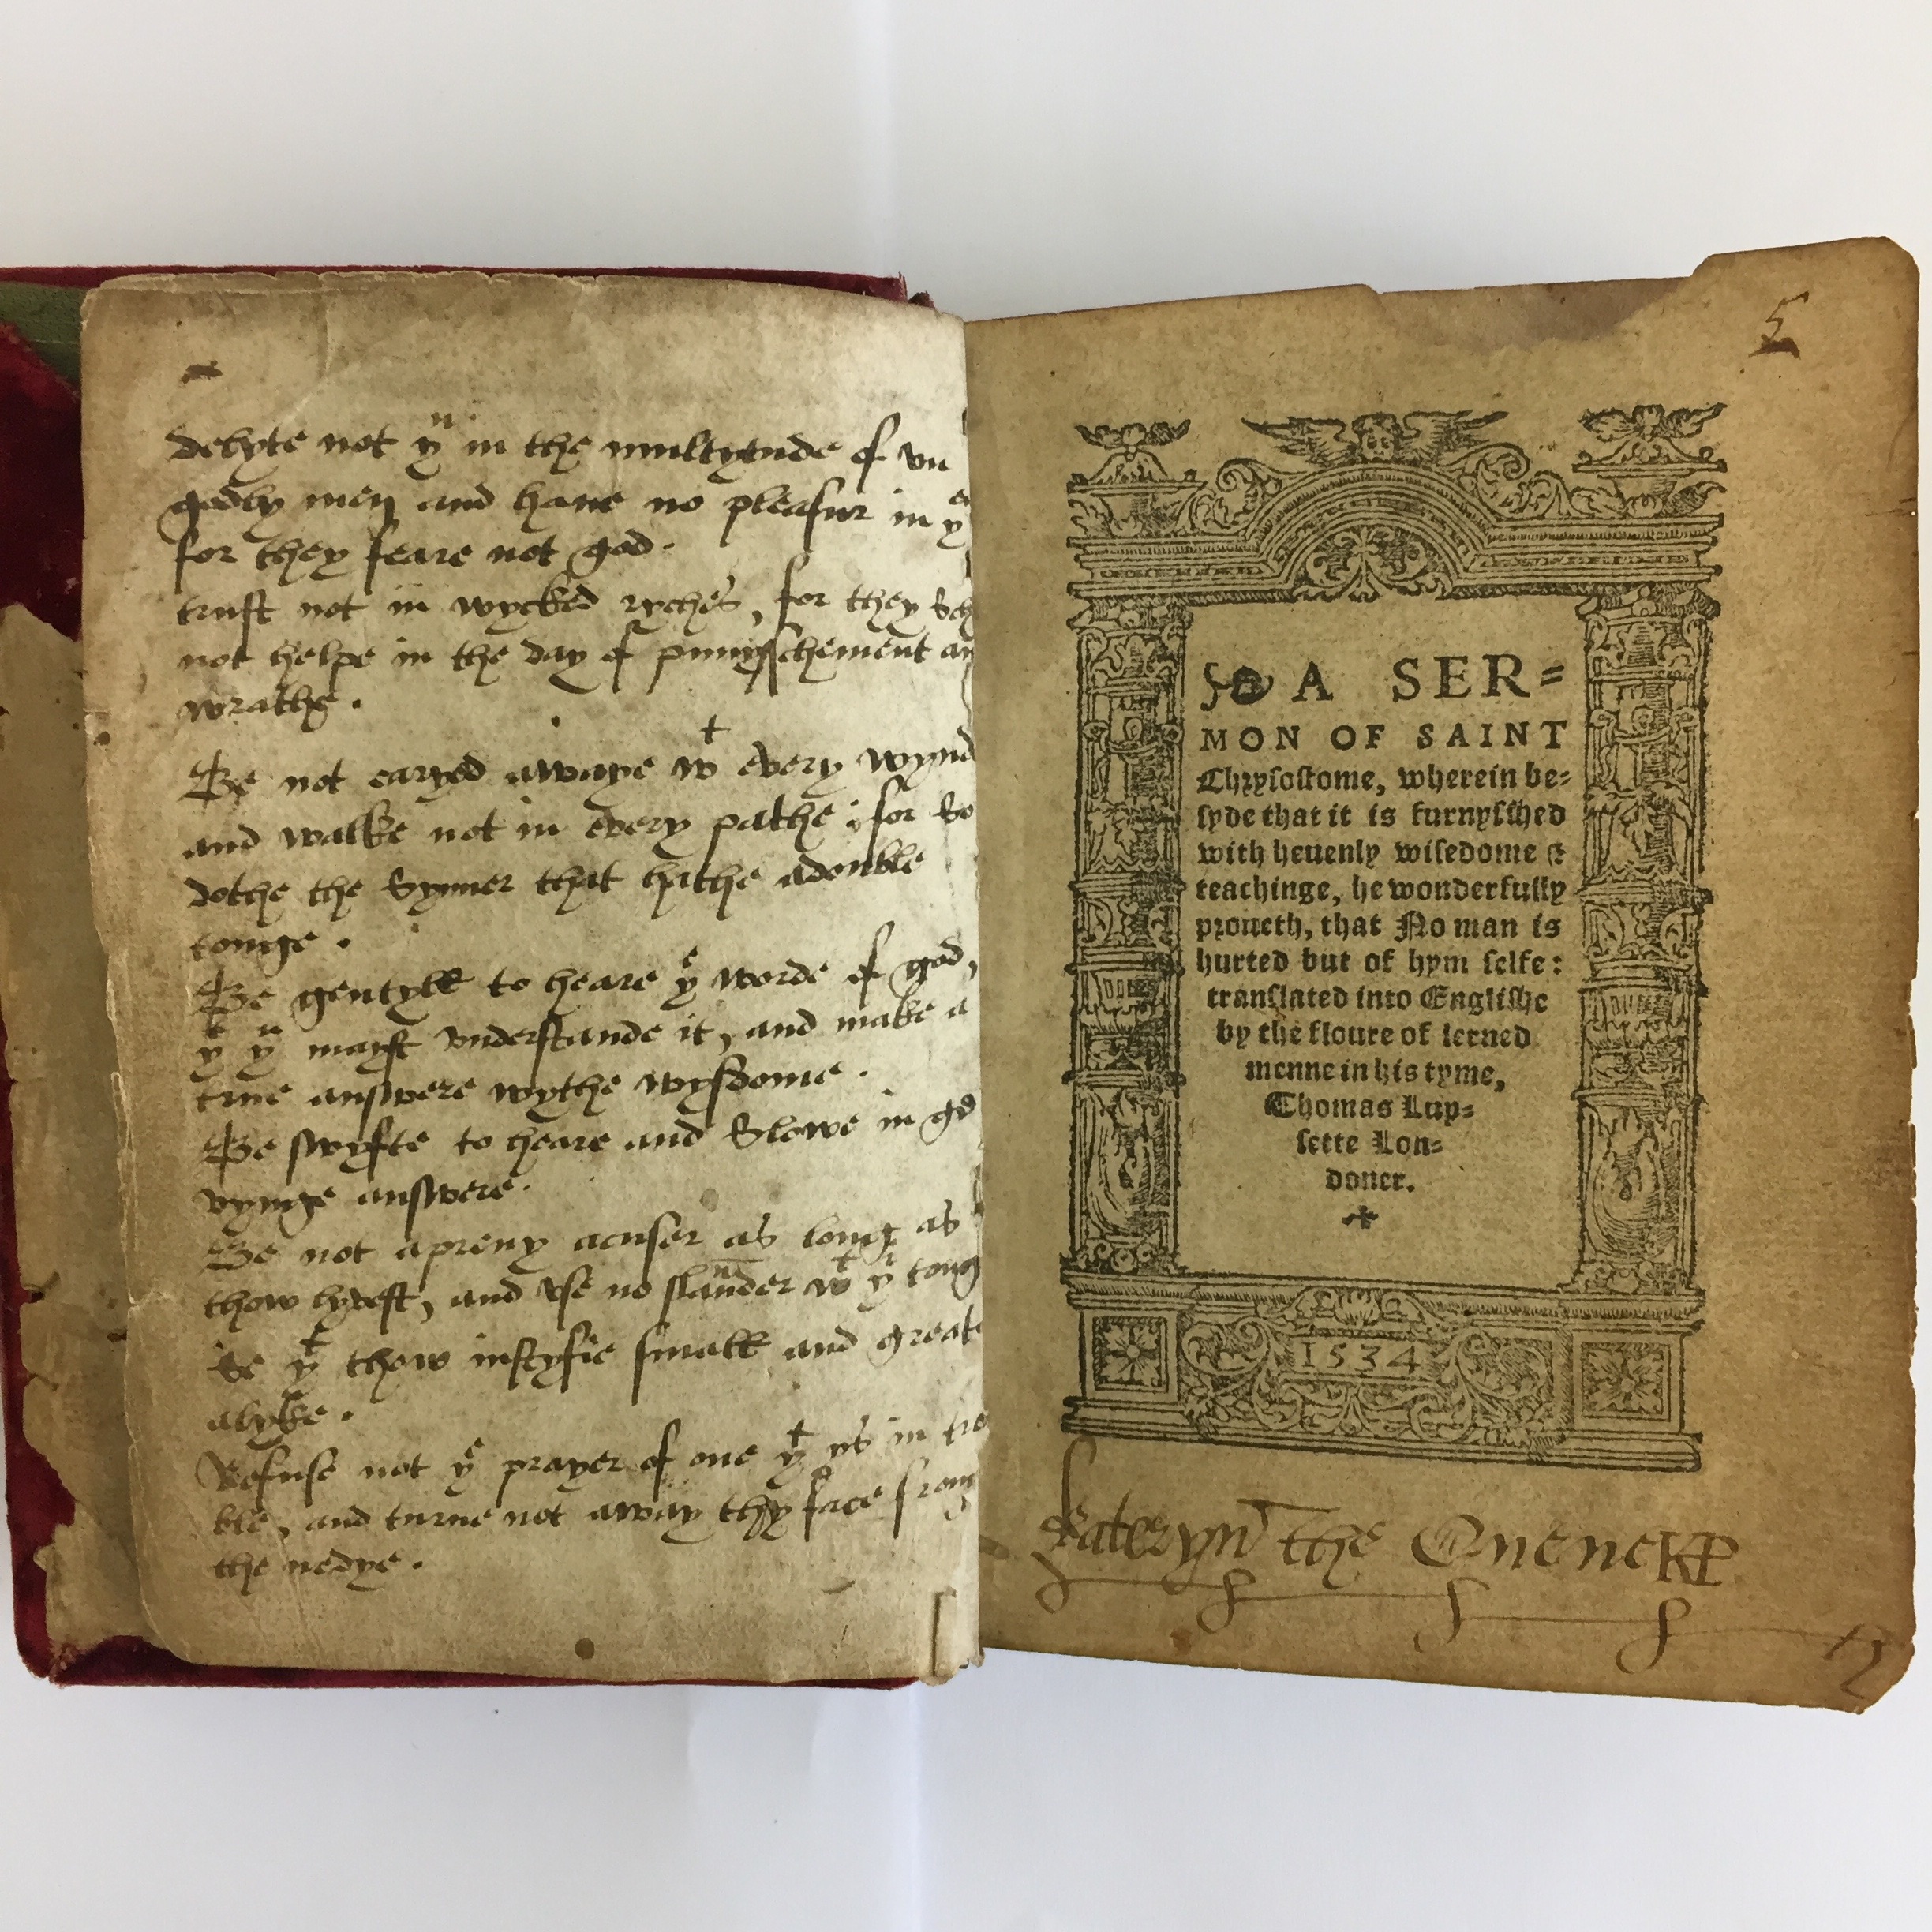 delyte not yᵘ in the multytude of vn
godly men and haue no pleasur in yᵉᵐ
for they feare not god.
trust not in wycked ryches, for they sch
not helpe in the day of punnyschement an
wrathe.
Be not caryed awaye wᵗ every wynd
and walke not in every pathe; for so
dothe the synner that hathe adouble
tounge.
Be gentyll to heare yᵉ worde of god,
yᵗ yᵘ mayst vnderstande it, and make a
true answere wythe wysdome.
Be swyfte to heare and slowe in ge
vynge answere.
Be not apreuy acuser as long as
thow lyvest, and vse no slaunder wᵗ yʳ tong
Se yᵗ thow iustyfie small and greate
alyke.
Refuse not yᵉ prayer of one yᵗ ys in tro
ble, and turne not away thy face from
the nedye.
5
A SER=
MON OF SAINT
Chrysostome, wherein be=
syde that it is furnysshed
with heuenly wisedome &
teachinge, he wonderfully
proueth, that No man is
hurted but of hym selfe:
translated into Englishe
by the floure of lerned
menne in his tyme,
Thomas Lup=
sette Lon=
doner.
1534
Kateryn the Quene KP